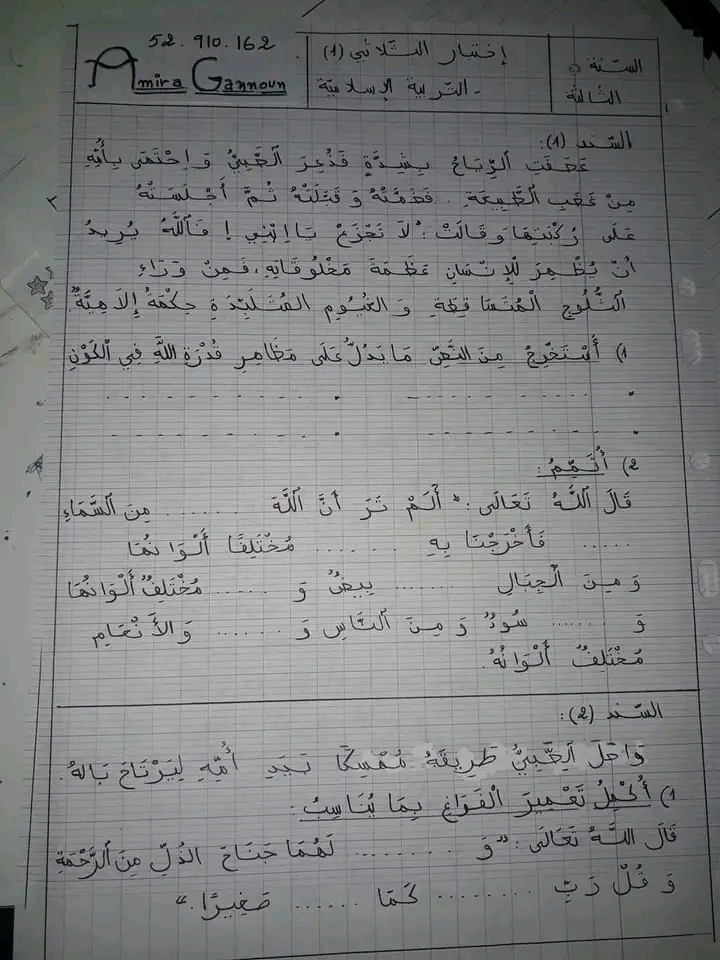 السّنة
الثّالثة
إختبار الثّلاثي (1)
- التّربية الإسلاميّة
52.910.162
Amira Gannoun
السّند (1):
عَصَفَتِ الرِّيَاحُ بِشِدَّةٍ فَذُعِرَ الصَّبِيُّ وَ احْتَمَى بِأُمِّهِ
مِنْ غَضَبِ الطَّبِيعَةِ. فَضَمَّتْهُ وَ قَبَّلَتْهُ ثُمَّ أَجْلَسَتْهُ
عَلَى رُكْبَتِهَا وَ قَالَتْ: "لاَ تَجْزَعْ يَا ابْنِي! فَاللَّهُ يُرِيدُ
أَنْ يُظْهِرَ لِلْإِنْسَانِ عَظَمَةَ مَخْلُوقَاتِهِ، فَمِنْ وَرَاءِ
الثُّلُوجِ الْمُتَسَاقِطَةِ وَ الغُيُومِ المُتَلَبِّدَةِ حِكْمَةٌ إِلاَهِيَّةٌ".
1) أَسْتَخْرِجُ مِنَ النَّصِّ مَا يَدُلُّ عَلَى مَظَاهِرِ قُدْرَةِ اللَّهِ فِي الكَوْنِ
2) أُتَمِّمُ:
قَالَ اللَّهُ تَعَالَى: "أَلَمْ تَرَ أَنَّ اللَّهَ ....... مِنَ السَّمَاءِ
..... فَأَخْرَجْنَا بِهِ ...... مُخْتَلِفًا أَلْوَانُهَا
وَ مِنَ الْجِبَالِ ....... بِيضٌ وَ ...... مُخْتَلِفٌ أَلْوَانُهَا
وَ ....... سُودٌ وَ مِنَ النَّاسِ وَ ....... وَ الأَنْعَامِ
مُخْتَلِفٌ أَلْوَانُهُ.
السّند (2):
وَاصَلَ الصَّبِيُّ طَرِيقَهُ مُمْسِكًا بِيَدِ أُمِّهِ لِيَرْتَاحَ بَالهُ.
1) أُكْمِلُ تَعْمِيرَ الْفَرَاغِ بِمَا يُنَاسِبُ:
قَالَ اللَّهُ تَعَالَى: "وَ ........ لَهُمَا جَنَاحَ الذُّلِّ مِنَ الرَّحْمَةِ
وَ قُلْ رَبِّ ........ كَمَا ...... صَغِيرًا."